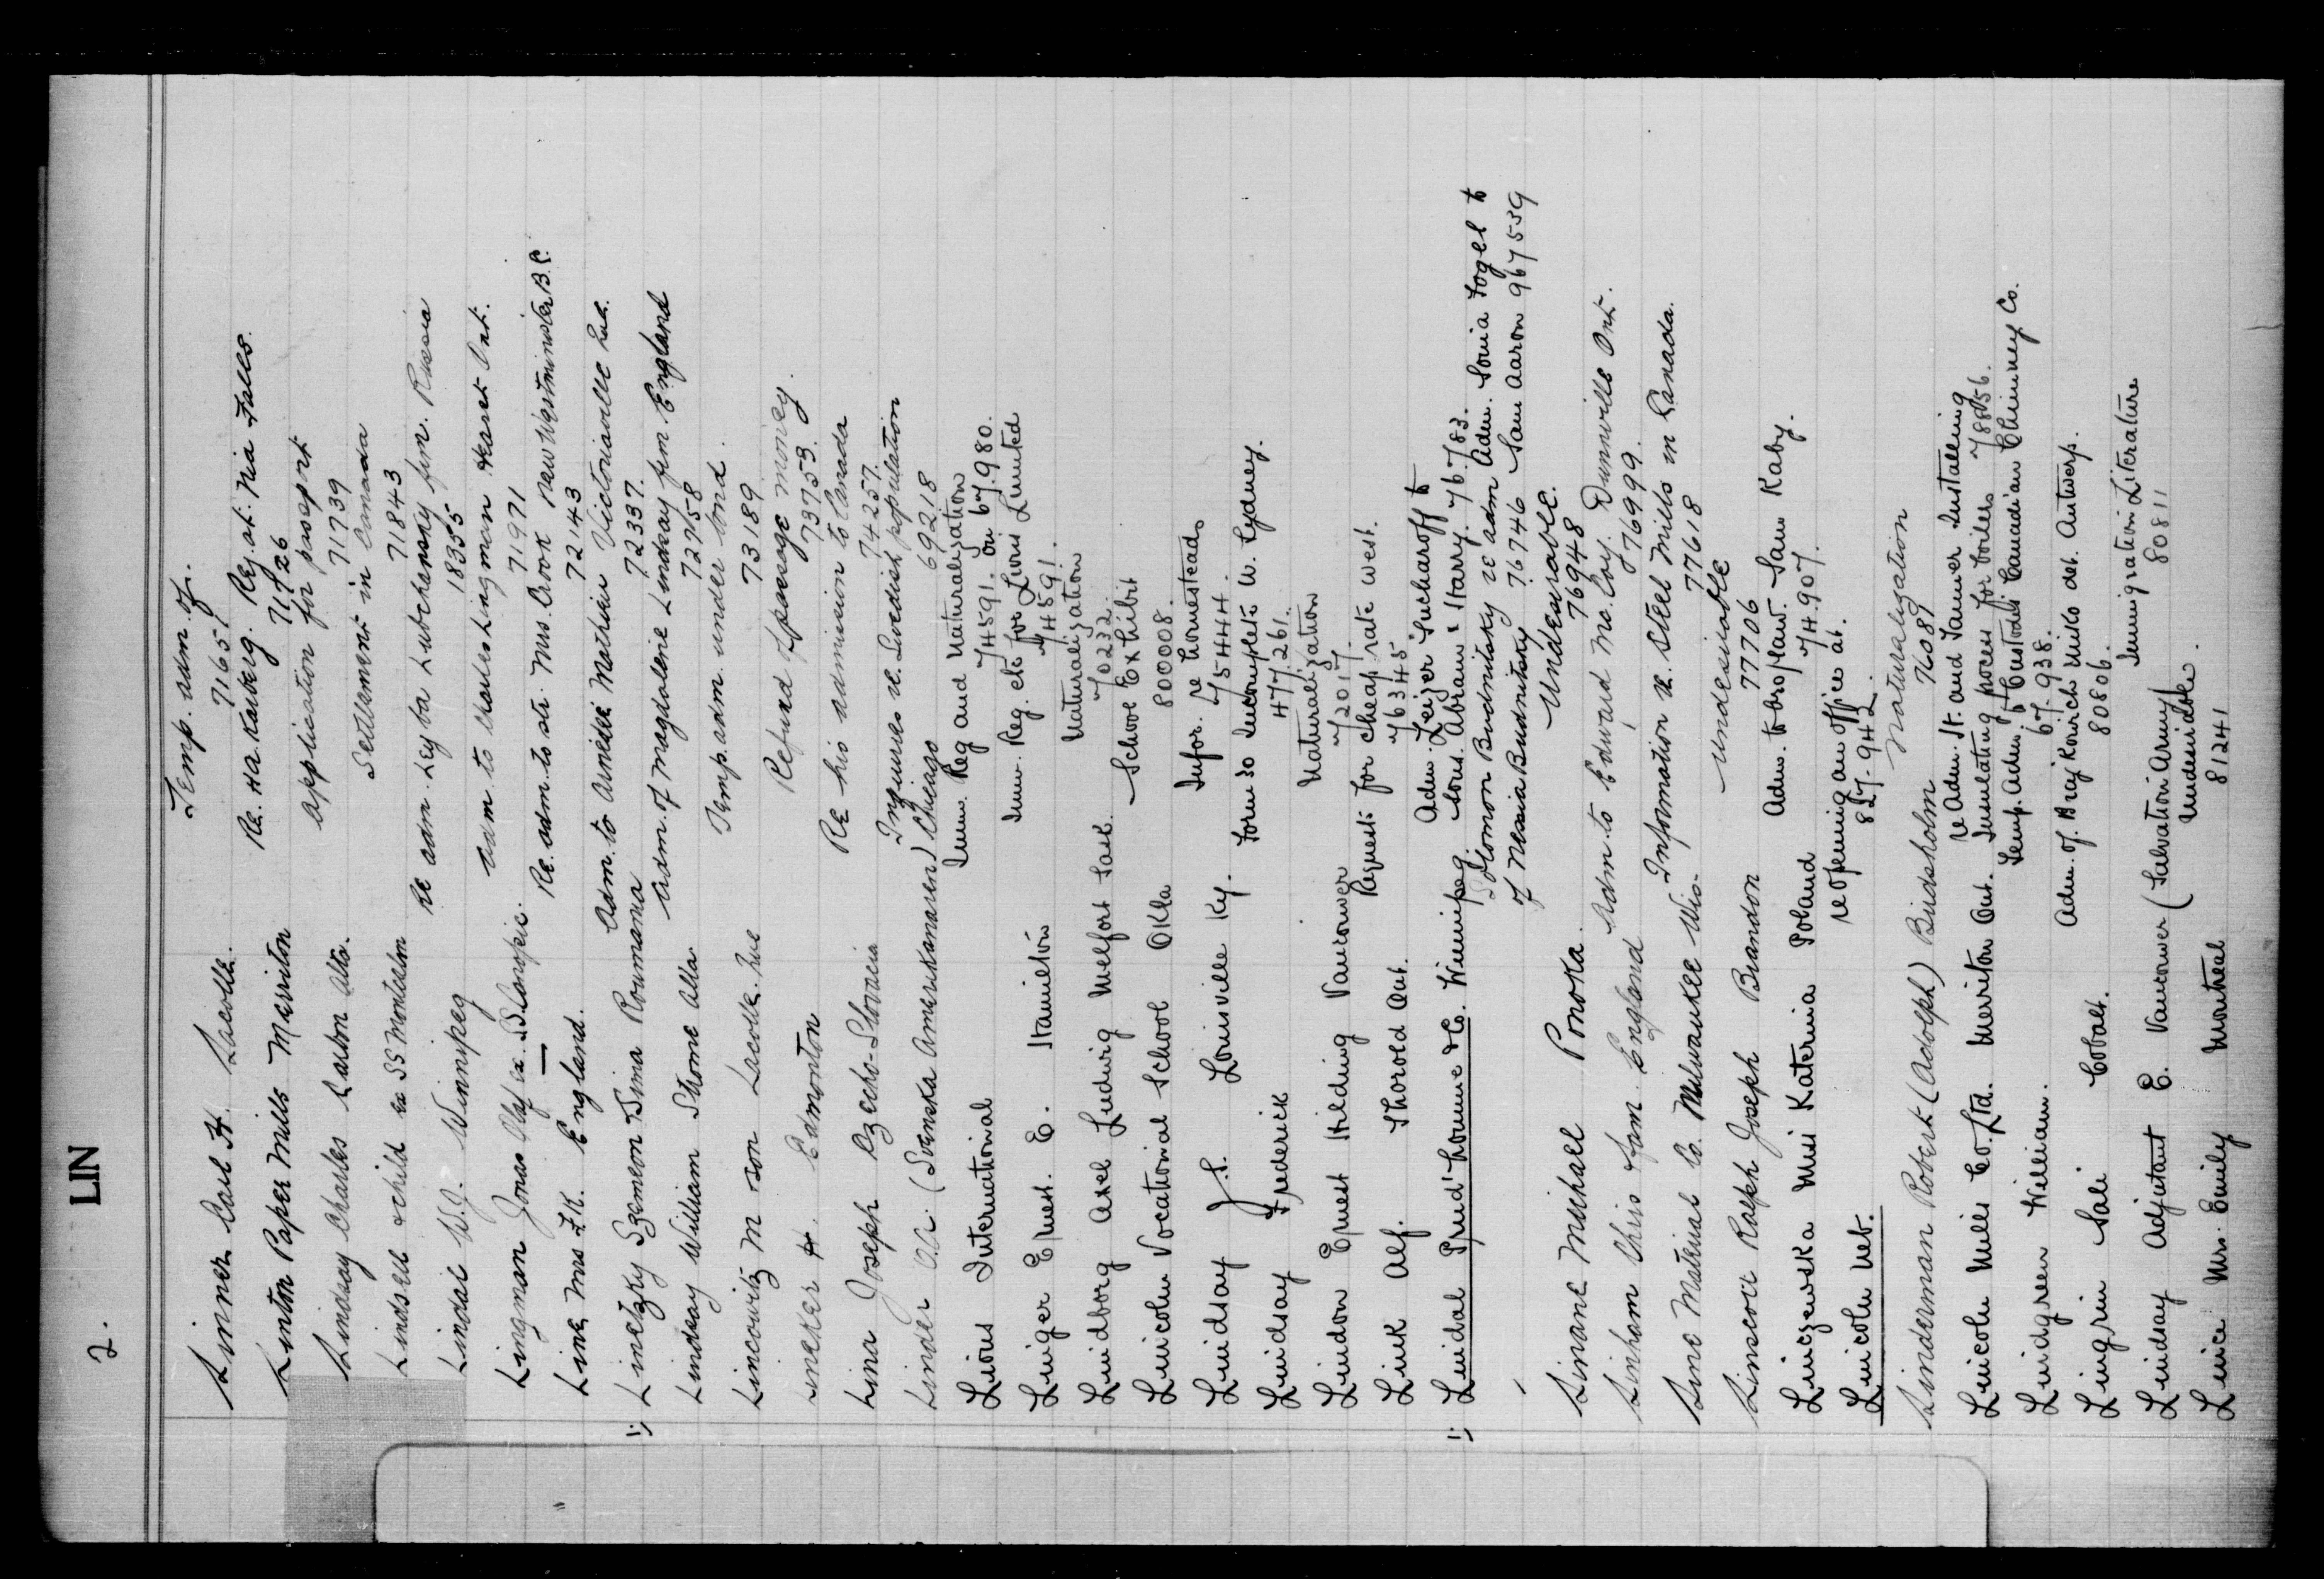 2. LIN
Liner Carl H. Lacolle. Temp. adm. of.
71651
Linton Paper Mills Merriton Re. Ha. Karberg. Rej. at. Nia Falls.
71726
Lindsay Charles Carbon Alta. Application for passport
71739
Lindsell & child ex SS Montcalm Settlement in Canada
71843
Lindal W.J. Winnipeg Re adm. Leyba Lubchansky frm. Russia
18355
Lingman Jonas Olaf ex. SS. Canopic. Adm. to Charles Lingman Hearst Ont.
71971
Line Mrs F.K. England. Re. adm. to str. Mrs. Crook New Westminster B.C.
72143
Linetzky Szemeon & Sima Roumania Adm. to Armelle Mathieu Victoriaville Que.
72337.
Lindsay William Strome Alta Adm. of Magdalene Lindsay frm. England
72758
Lincovitz M son Lacolle. Que Temp. adm. under bond.
73189
Lineker H. Edmonton Refund of passage money.
73753.
Lina Joseph Czecho-Slovacia Re his admission to Canada
74257.
Linder O.A. (Svenska Amerikanaren) Chicago Inquires re. Swedish population
69218
Lions International Imm. Reg and Naturalization
74591. On 67.980.
Liniger Ernest. E. Hamilton Imm. Reg. etc for Lions Limited
74591.
Lindborg Axel Ludwig Melfort Sask. Naturalization
70232.
Lincoln Vocational School Okla School Exhibit
800008.
Lindsay J.S. Louisville Ky. Infor. re homesteads
75444.
Lindsay Frederick Form 30 Incomplete W. Sydney.
477261.
Lindon Ernest Hilding Vancouver Naturalization
72017.
Link Alf. Thorold Ont. Request for cheap rate west.
76345
Lindal Prud'homme & Co. Winnipeg. Adm. Leizer Sucharoff to
sons. Abram & Harry. 76.783.
Solomon Budnitsky re adm Adm. Sonia Fogel to
of Nessia Budnitsky 76746 Sam Aaron 967559
Linane Michael Ponoka. Undesirable.
76948
Linham Chris & fam. England Adm. to Edward Mc.Coy. Dunnville Ont.
76999.
Line Material Co. Milwaukee Wis. Information re. Steel Mills in Canada.
77618
Linscott Ralph Joseph Brandon Undesirable
77706
Linczewska Miss Katernia Poland Adm. to bro/law. Sam Raby.
74.907.
Lincoln Neb. re opening an office at.
827.942.
Linderman Robert (Adolph) Birdsholm Naturalization
76089
Lincoln Mills Co. Ltd. Merriton Ont. re Adm. H. and Tanner Installing
Insulating process for boilers 78856.
Lindgreen William. Temp. Adm. of Custodis Canadian Chimney Co.
67.938.
Lingrin Sali Cobalt. Adm. of. Breg Konrich Miko det. Antwerp.
80806.
Lindsay Adjutant E. Vancouver (Salvation Army) Immigration Literature
80811
Linice Mrs. Emily Montreal Undesirable.
81241